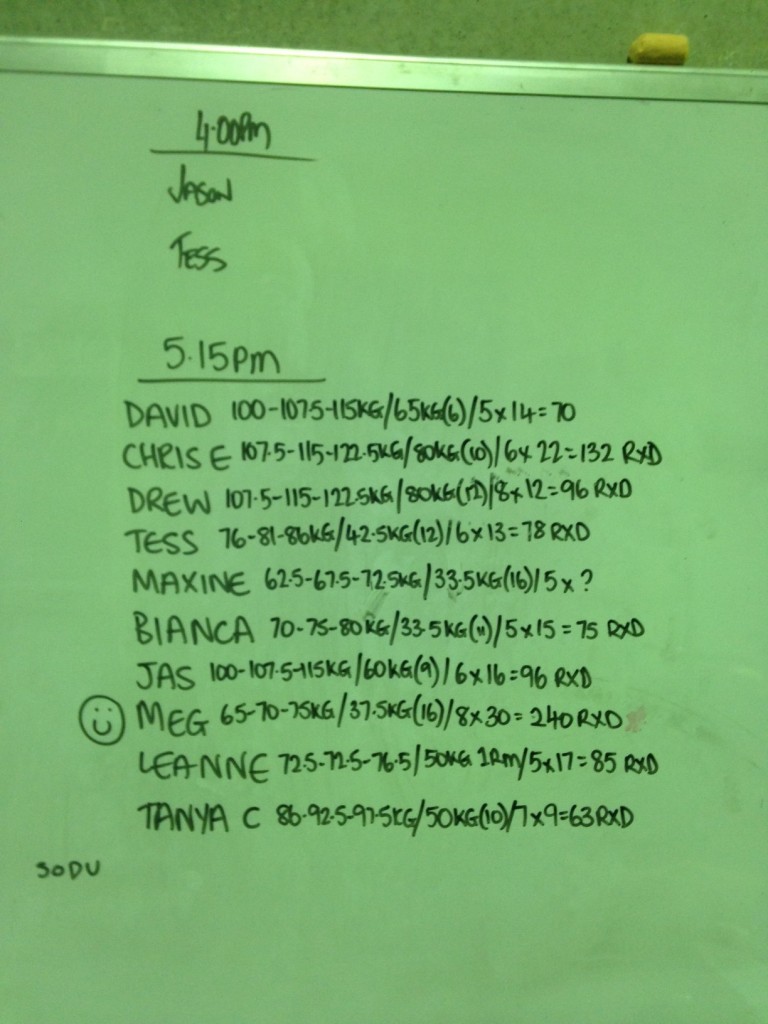 4.00Pm
JASON
TESS
5.15pm
DAVID 100-107.5-115KG/65KG(6)/5x14=70
CHRIS E 107.5-115-122.5KG/80KG(10)/6x22=132 RXD
DREW 107.5-115-122.5KG/80KG(12)/8x12=96 RXD
TESS 76-81-86KG/42.5KG(12)/6x13=78 RXD
MAXINE 62.5-67.5-72.5KG/33.5KG(16)/5x?
BIANCA 70-75-80KG/33.5KG(11)/5x15=75 RXD
JAS 100-107.5-115KG/60KG(9)/6x16=96 RXD
MEG 65-70-75KG/37.5KG(16)/8x30=240 RXD
LEANNE 72.5-72.5-76.5/50KG 1RM/5x17=85 RXD
TANYA C 86-92.5-97.5KG/50KG(10)/7x9=63 RXD
SODU